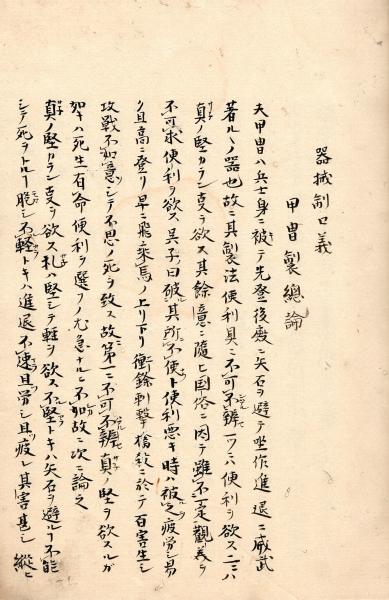 器械制口義
甲冑製總論
夫甲冑ハ兵士身ニ被テ先登後殿ニ矢石ヲ避テ坐作進退ニ威武
著ルヽノ器也故ニ其製法便利具ニ不可不辨一ツニハ便利ヲ欲ス二ニハ
真ノ堅カラン支ヲ欲ス其餘意ニ隨ヒ国俗ニ因テ雖不定観義ヲ
不可求便利ヲ欲ス呉子曰破其所不便ト便利悪キ時ハ被之疲労シ易
ク且高ニ登リ早ニ飛ヒ乗馬ノ上リ下リ衝鋒刺撃槍殺ニ於テ百害生シ
攻戦不如意シテ不思ノ死ヲ致ス故第一ニ不可不辨真ノ堅ヲ欲スルガ
如キハ死生有命便利ヲ選フノ尤急ナルニ不如故ニ次ニ論之
真ノ堅カラン支ヲ欲ス札ハ堅シテ軽ヲ欲ス不堅トキハ矢石ヲ避ルニ不能
シテ死ヲトルニ脆シ不軽トキハ進退不速且労シ且疲レ其害甚シ縦ヒ